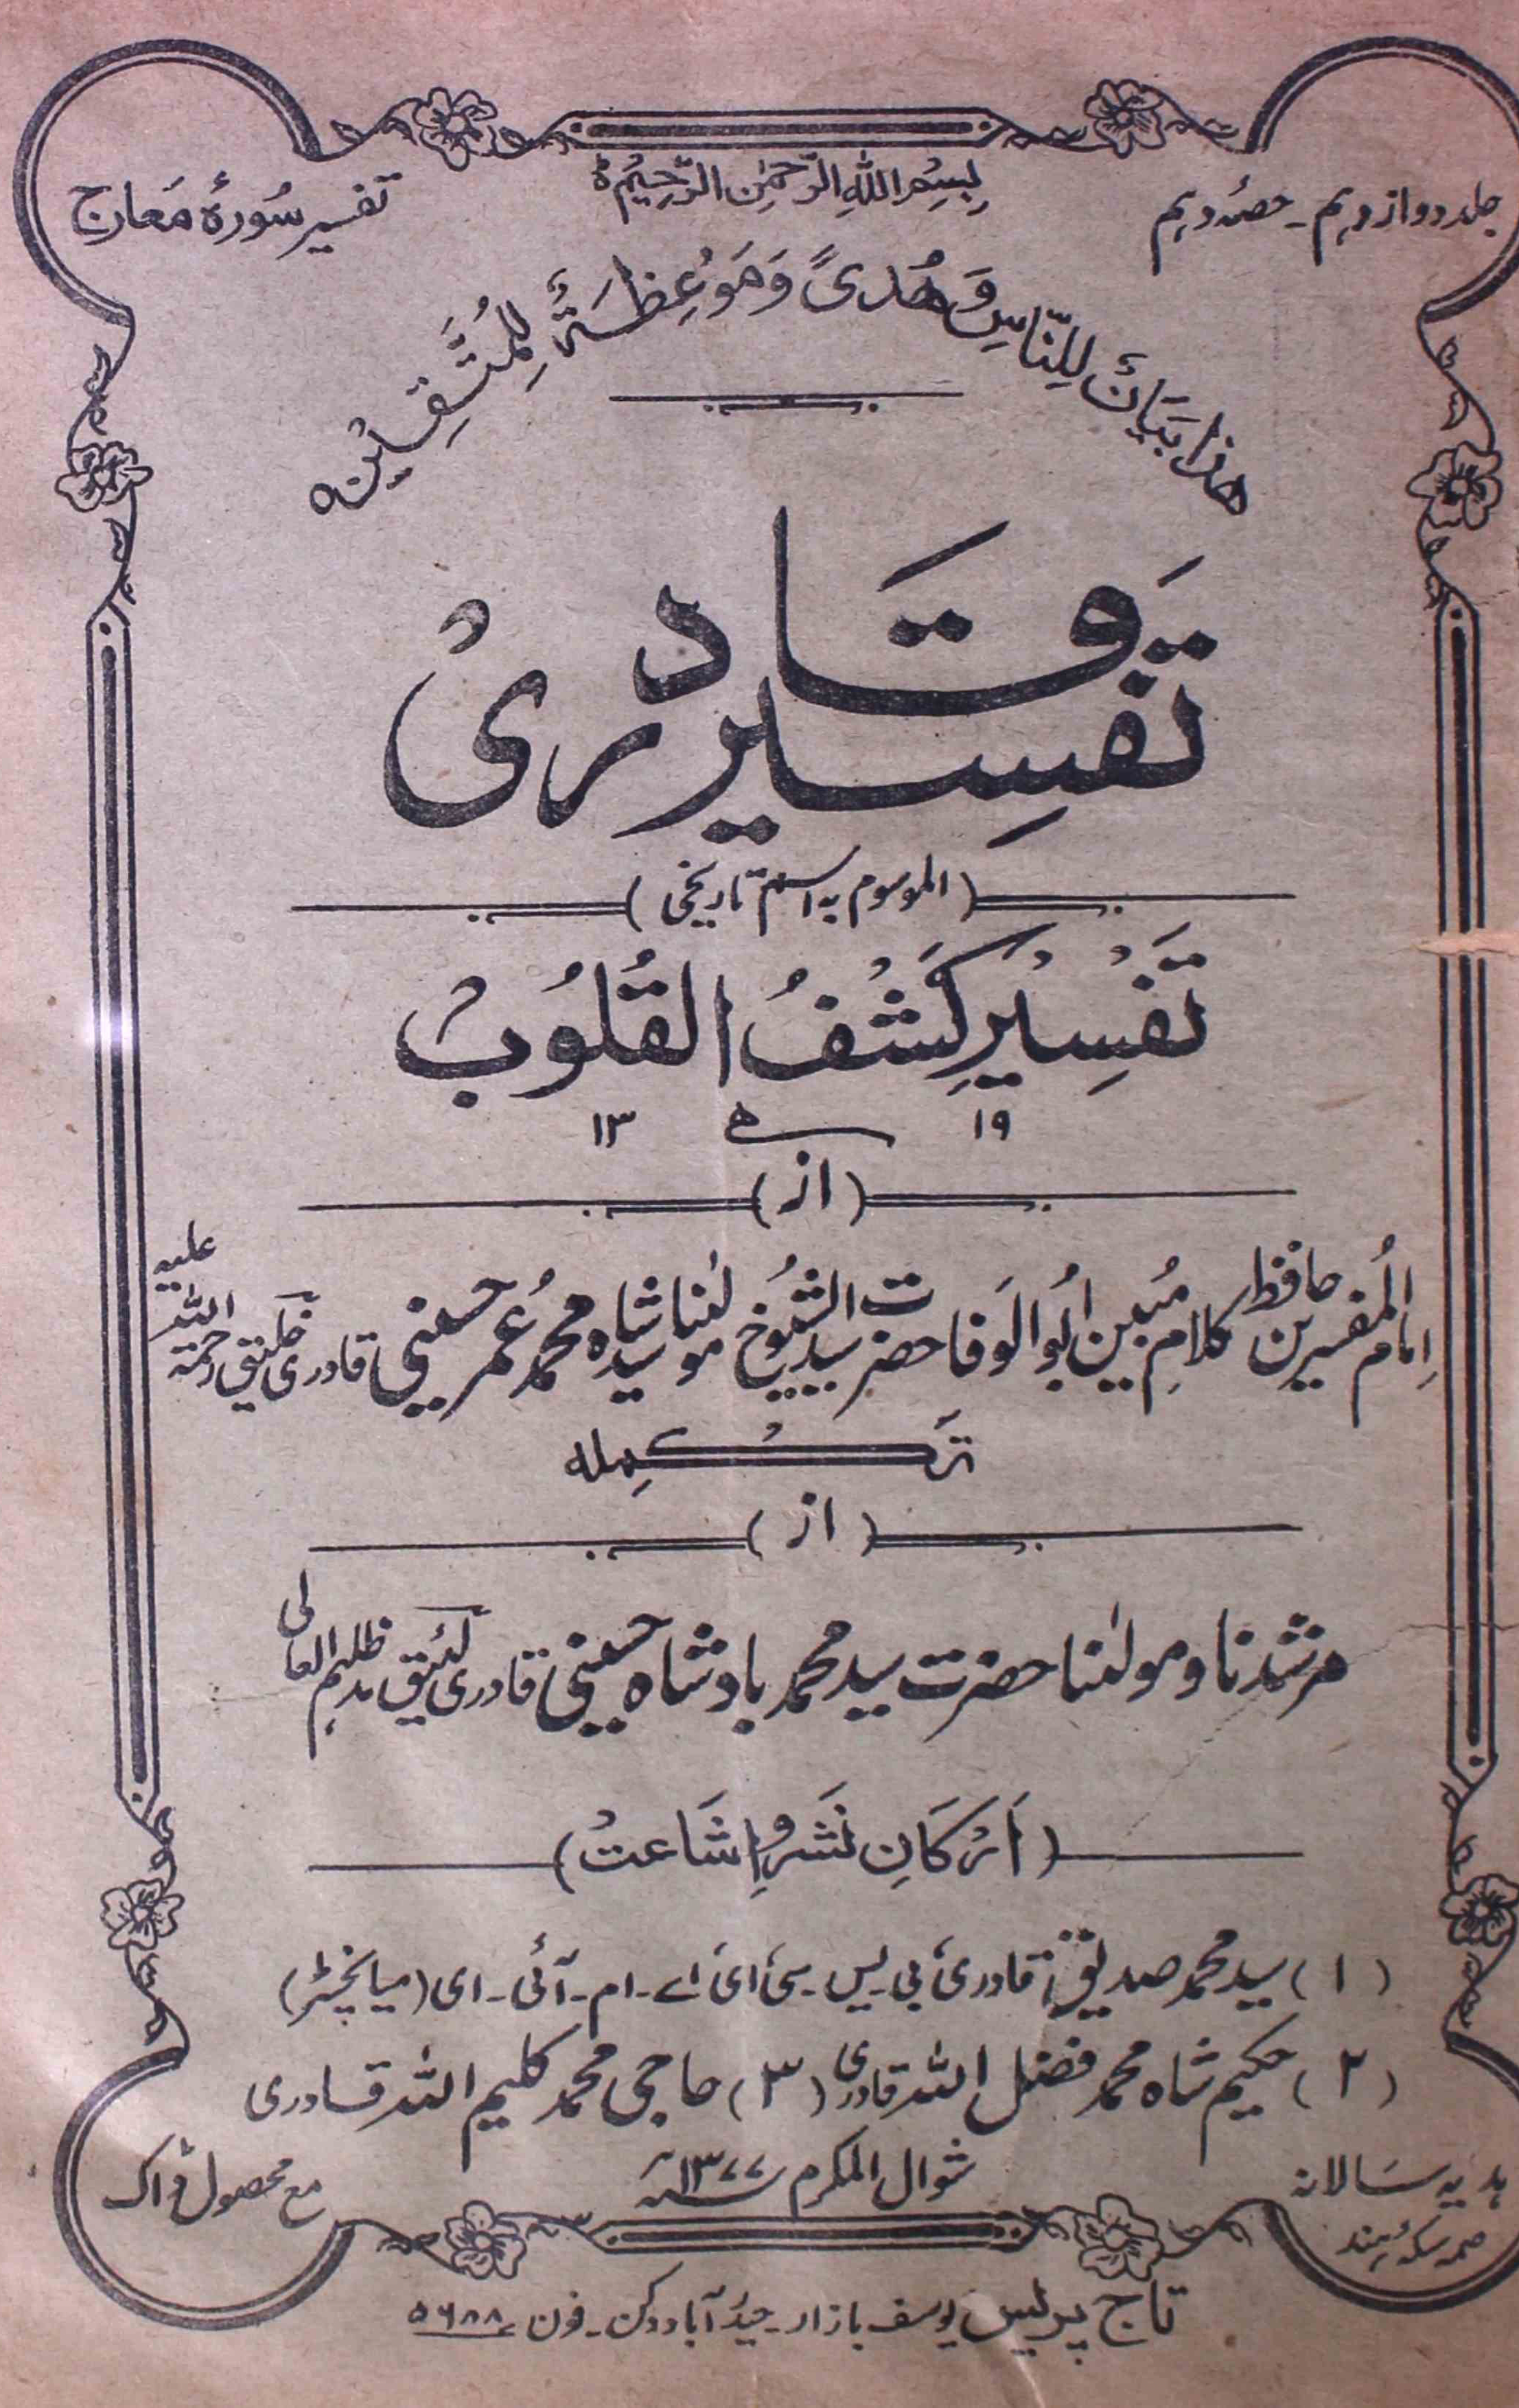 بِسْمِ اللهِ الرَّحْمٰنِ الرَّحِيْمِ
جلد دوازدہم - حصہ دہم
تفسیر سُورۂ مَعارج
هذا بَيَانٌ لِلنَّاسِ وَهُدًى وَمَوْعِظَةٌ لِلْمُتَّقِيْنَ
تفسیر قادری
(الموسوم بہ اسم تاریخی)
تَفْسِيْر كَشْفُ الْقُلُوْبْ
۱۹ ھ ۱۳
(از)
اِمام المُفسرین حافظ کلامِ مُبین ابُو الوَفا حضرت سید الشیُوخ مولٰنا سید شاہ محمد عُمر حسینی قادری خلیق رحمۃ اللہ علیہ
تَکْمِلہ
(از)
مرشدنا و مولٰنا حضرت سید محمد بادشاہ حسینی قادری لئیق مدظلہم العالی
(اَرْکَانِ نَشَر و اِشَاعتْ)
(۱) سید محمد صدیق قادری، بی۔ یس۔ سی، ای، اے۔ ام۔ آئی۔ ای (میانچٹر)
(۲) حکیم شاہ محمد فضل اللہ قادری (۳) حاجی محمد کلیم اللہ قادری
شوال المکرم ۱۳۷۷ھ
ہدیہ سَالانہ
سکہ ہند
مع محصول ڈاک
تاج پریس یوسف بازار۔ حیدرآباد دکن۔ فون ۵۶۸۸